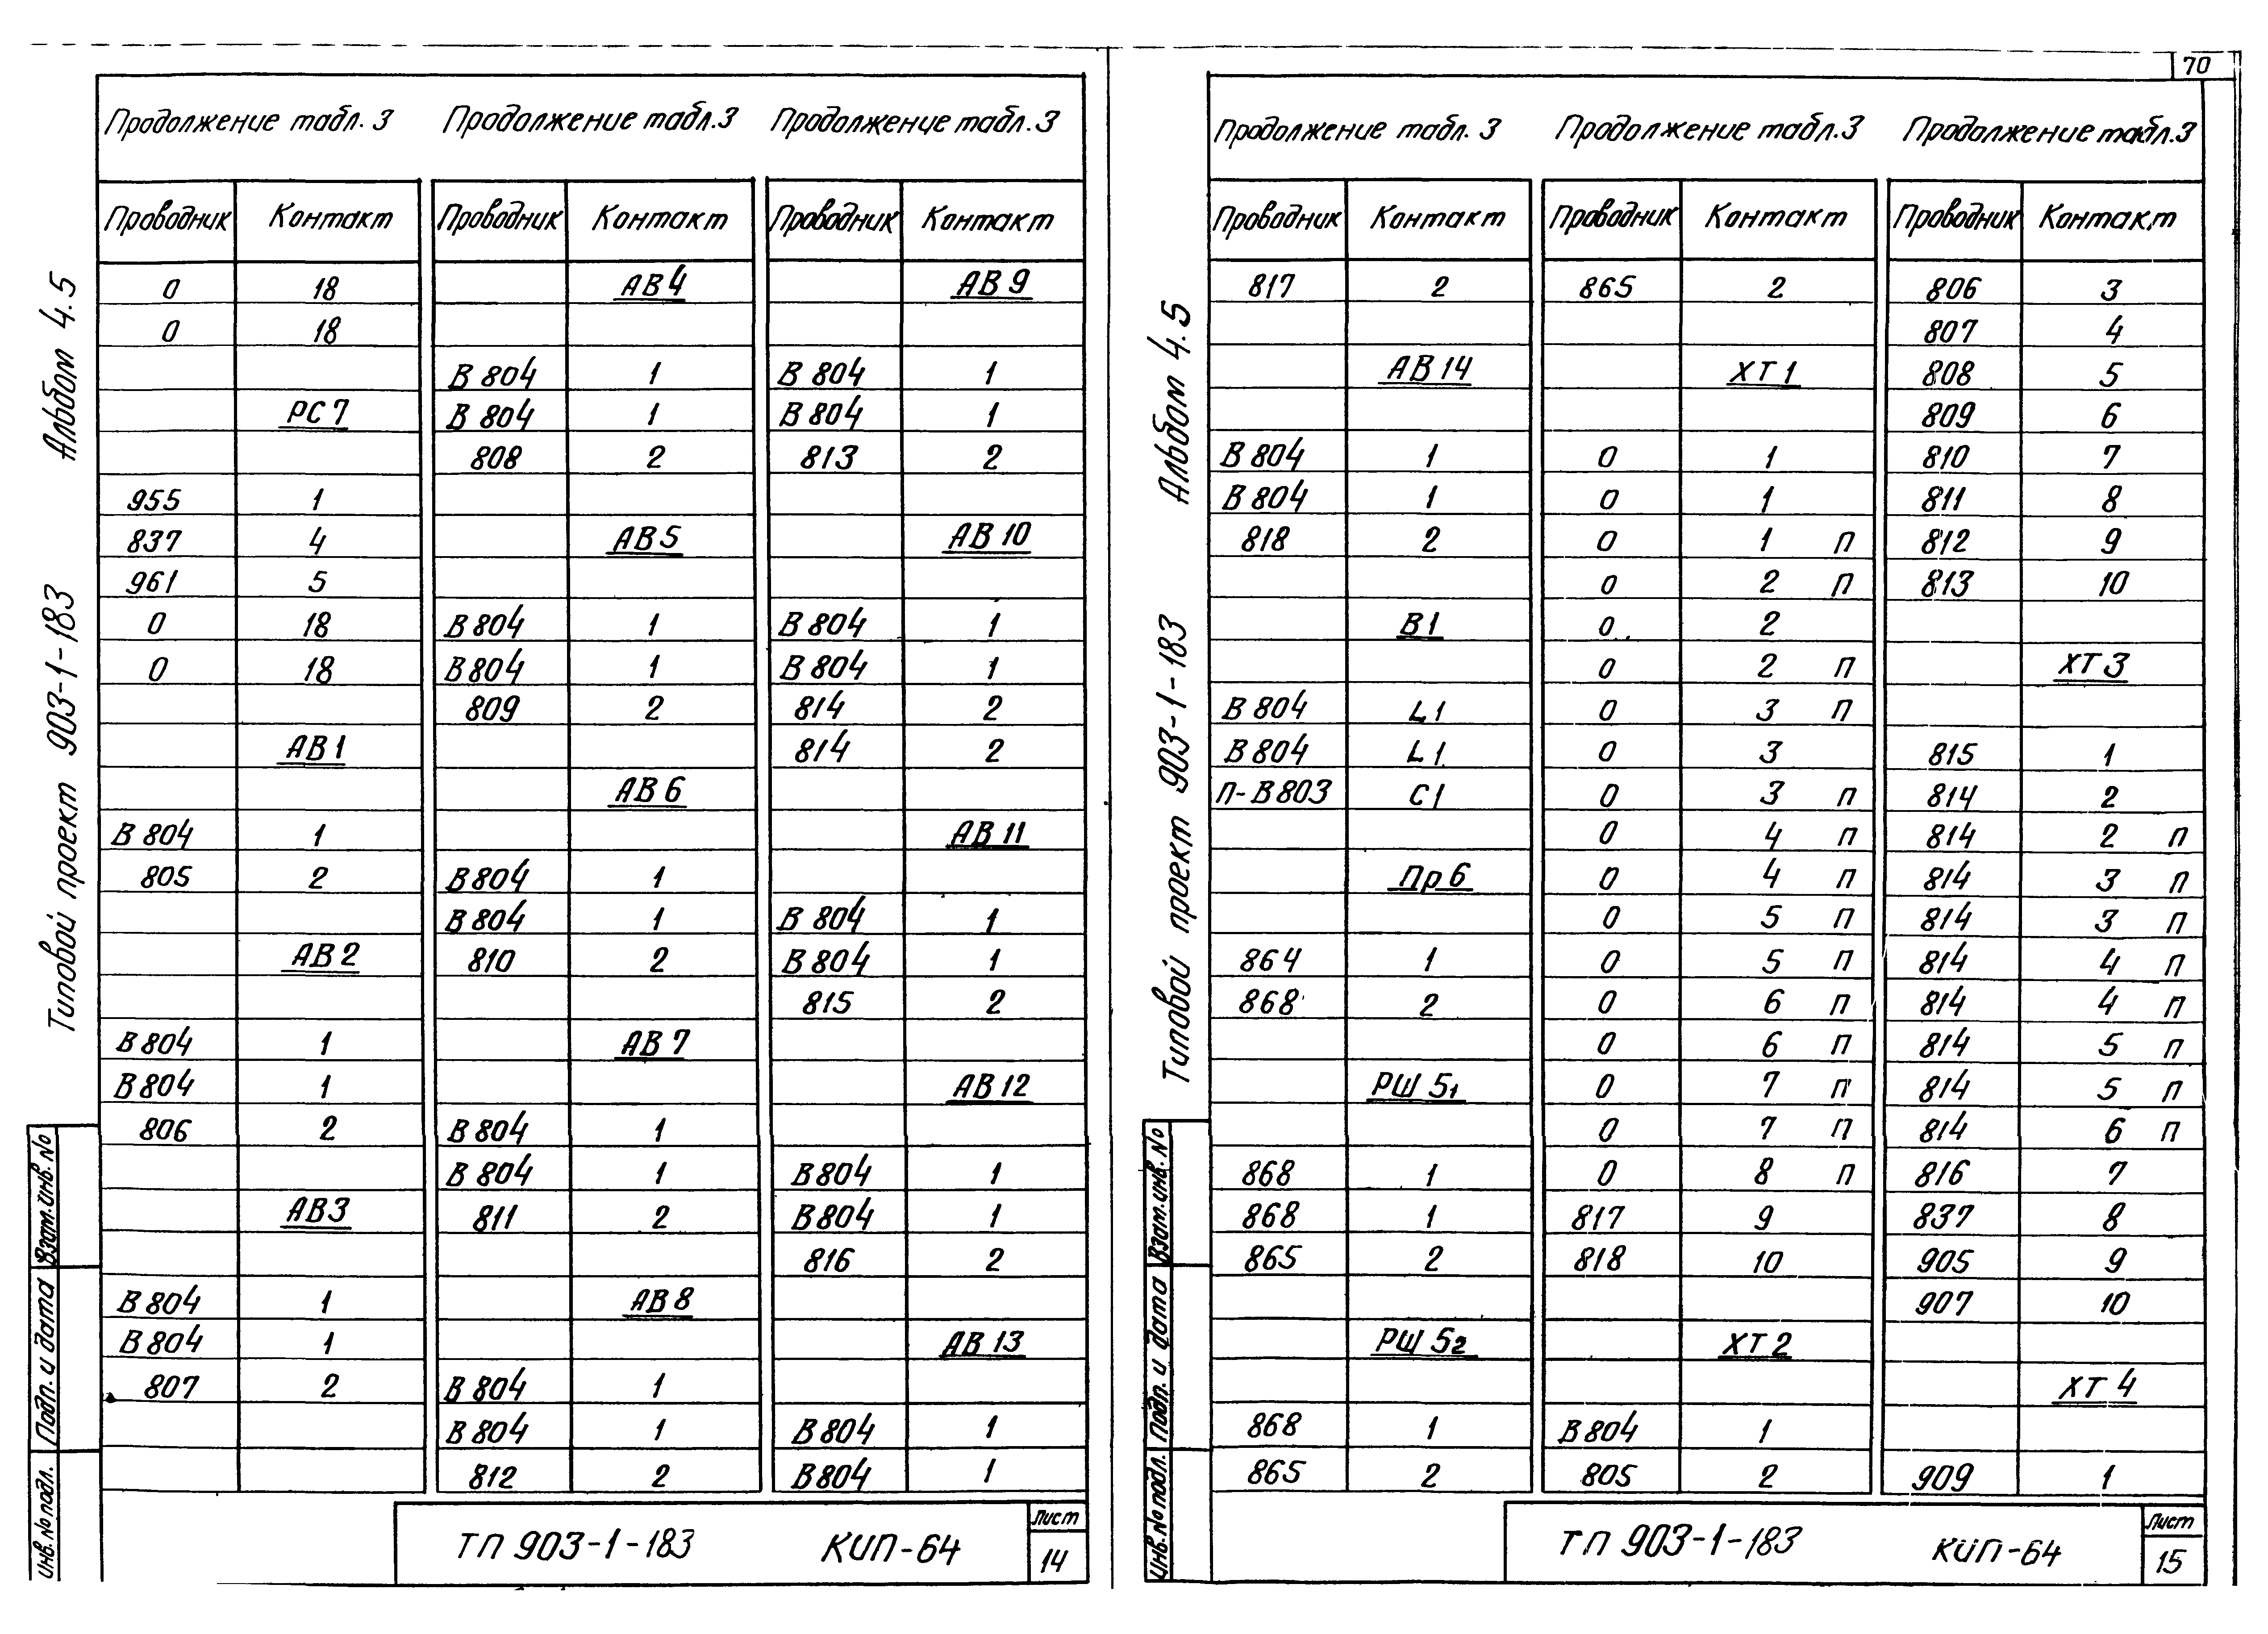 70
Альбом 4.5
Типовой проект 903-1-183
Продолжение табл. 3
Проводник Контакт
0 18
0 18
РС7
955 1
837 4
961 5
0 18
0 18
АВ1
В804 1
805 2
АВ2
В804 1
В804 1
806 2
АВ3
В804 1
В804 1
807 2
Продолжение табл.3
Проводник Контакт
АВ4
В804 1
В804 1
808 2
АВ5
В804 1
В804 1
809 2
АВ6
В804 1
В804 1
810 2
АВ7
В804 1
В804 1
811 2
АВ8
В804 1
В804 1
812 2
Продолжение табл.3
Проводник Контакт
АВ9
В804 1
В804 1
813 2
АВ10
В804 1
В804 1
814 2
814 2
АВ11
В804 1
В804 1
815 2
АВ12
В804 1
В804 1
816 2
АВ13
В804 1
В804 1
Взам.инв.№
Подп. и дата
Инв.№подл.
ТП 903-1-183 КИП-64
Лист
14
Альбом 4.5
Типовой проект 903-1-183
Продолжение табл. 3
Проводник Контакт
817 2
АВ14
В804 1
В804 1
818 2
В1
В804 L1
В804 L1
П-В803 С1
Пр6
864 1
868 2
РШ 51
868 1
868 1
865 2
РШ 52
868 1
865 2
Продолжение табл.3
Проводник Контакт
865 2
ХТ1
0 1
0 1
0 1 П
0 2 П
0 2
0 2 П
0 3 П
0 3
0 3 П
0 4 П
0 4 П
0 5 П
0 5 П
0 6 П
0 6 П
0 7 П
0 7 П
0 8 П
817 9
818 10
ХТ2
В804 1
805 2
Продолжение табл.3
Проводник Контакт
806 3
807 4
808 5
809 6
810 7
811 8
812 9
813 10
ХТ3
815 1
814 2
814 2 П
814 3 П
814 3 П
814 4 П
814 4 П
814 5 П
814 5 П
814 6 П
816 7
837 8
905 9
907 10
ХТ4
909 1
Взам.инв.№
Подп. и дата
Инв.№подл.
ТП 903-1-183 КИП-64
Лист
15